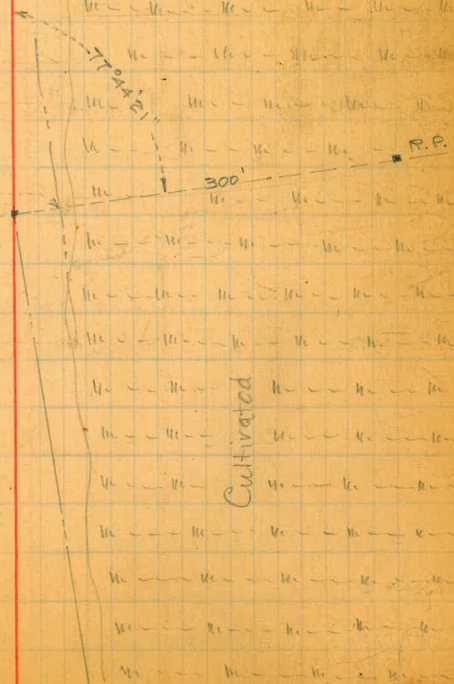 77°44'21"
R.P.
300'
Cultivated